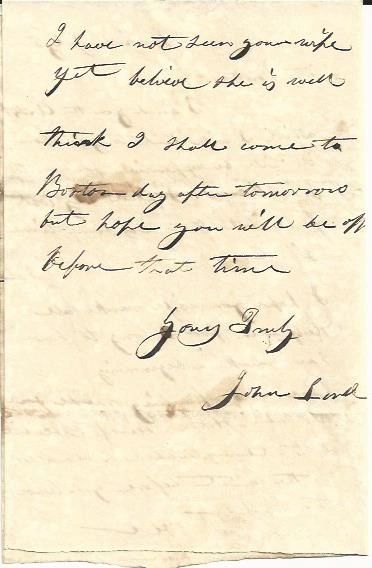 I have not seen your wife
yet believe she is well
think I shall come to
Boston day after tomorrow
but hope you will be off
before that time
Yours Truly
John